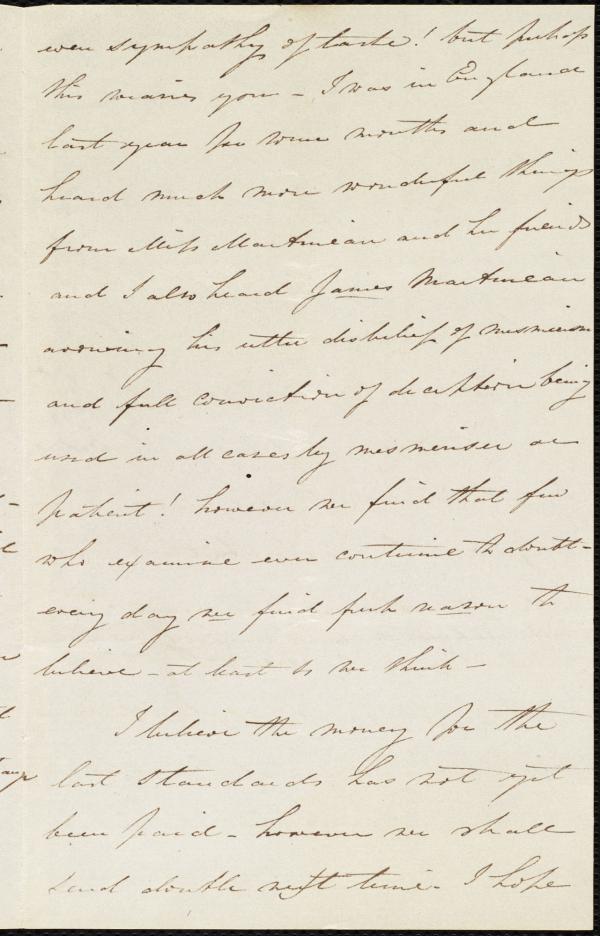 even sympathy of taste! but perhaps
this wearies you - I was in England
last year for some months and
heard much more wonderful things
from Miss Martineau and her friends
and I also heard James Martineau
avowing his utter disbelief of mesmerism
and full conviction of deception being
used in all cases by mesmeriser or
patient! however we find that few
who examine ever continue to doubt -
every day we find fresh reason to
believe - at least so we think -
I believe the money for the
last Standards has not yet
been paid - however we shall
send double next time - I hope